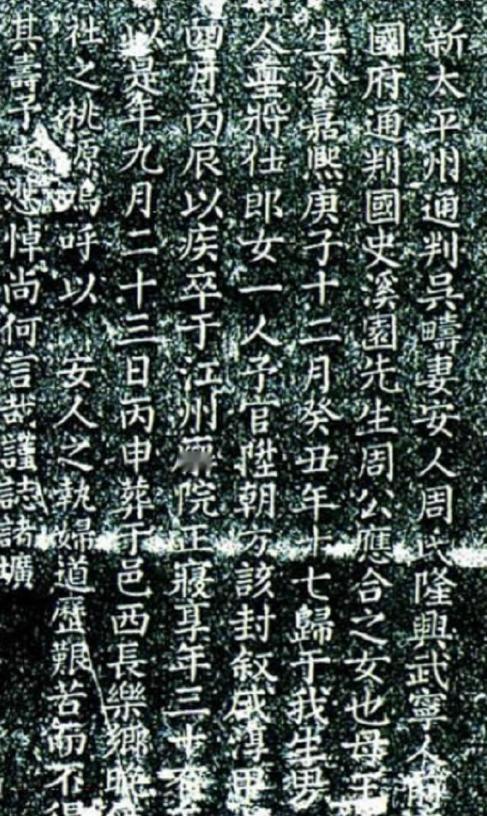 新太平州通判吳疇妻安人周氏隆興武寧人前
國府通判國史溪園先生周公應合之女也母王
生於嘉熙庚子十二月癸丑年十七歸于我生男
人壐將仕郎女一人予官陞朝方該封叙咸淳甲
四月丙辰以疾卒于江州院正寢享年三十有
以是年九月二十三日丙申葬于邑西長樂鄉
社之桃原嗚呼以安人之執婦道歷艱苦而不得
其壽予之悲悼尚何言哉謹誌諸壙